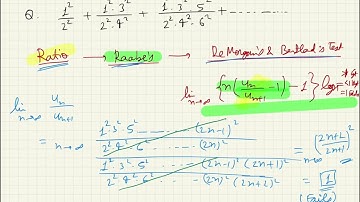 Q. 1²/2² + 1²·3²/2²·4² + 1²·3²·5²/2²·4²·6² + -------
Ratio → Raabe's → De Morgan's & Bertrand's Test
lim n→∞ [{n(uₙ/uₙ₊₁ -1) -1} log n
lim n→∞ uₙ/uₙ₊₁
= lim n→∞ 1²·3²·5² ------- (2n-1)² / 2²·4²·6² ------- (2n)² = (2n+2/2n+1)²
1²·3²·5² ------- (2n-1)² (2n+1)² / 2²·4²·6² ------- (2n)² (2n+2)² = 1
(Fails)